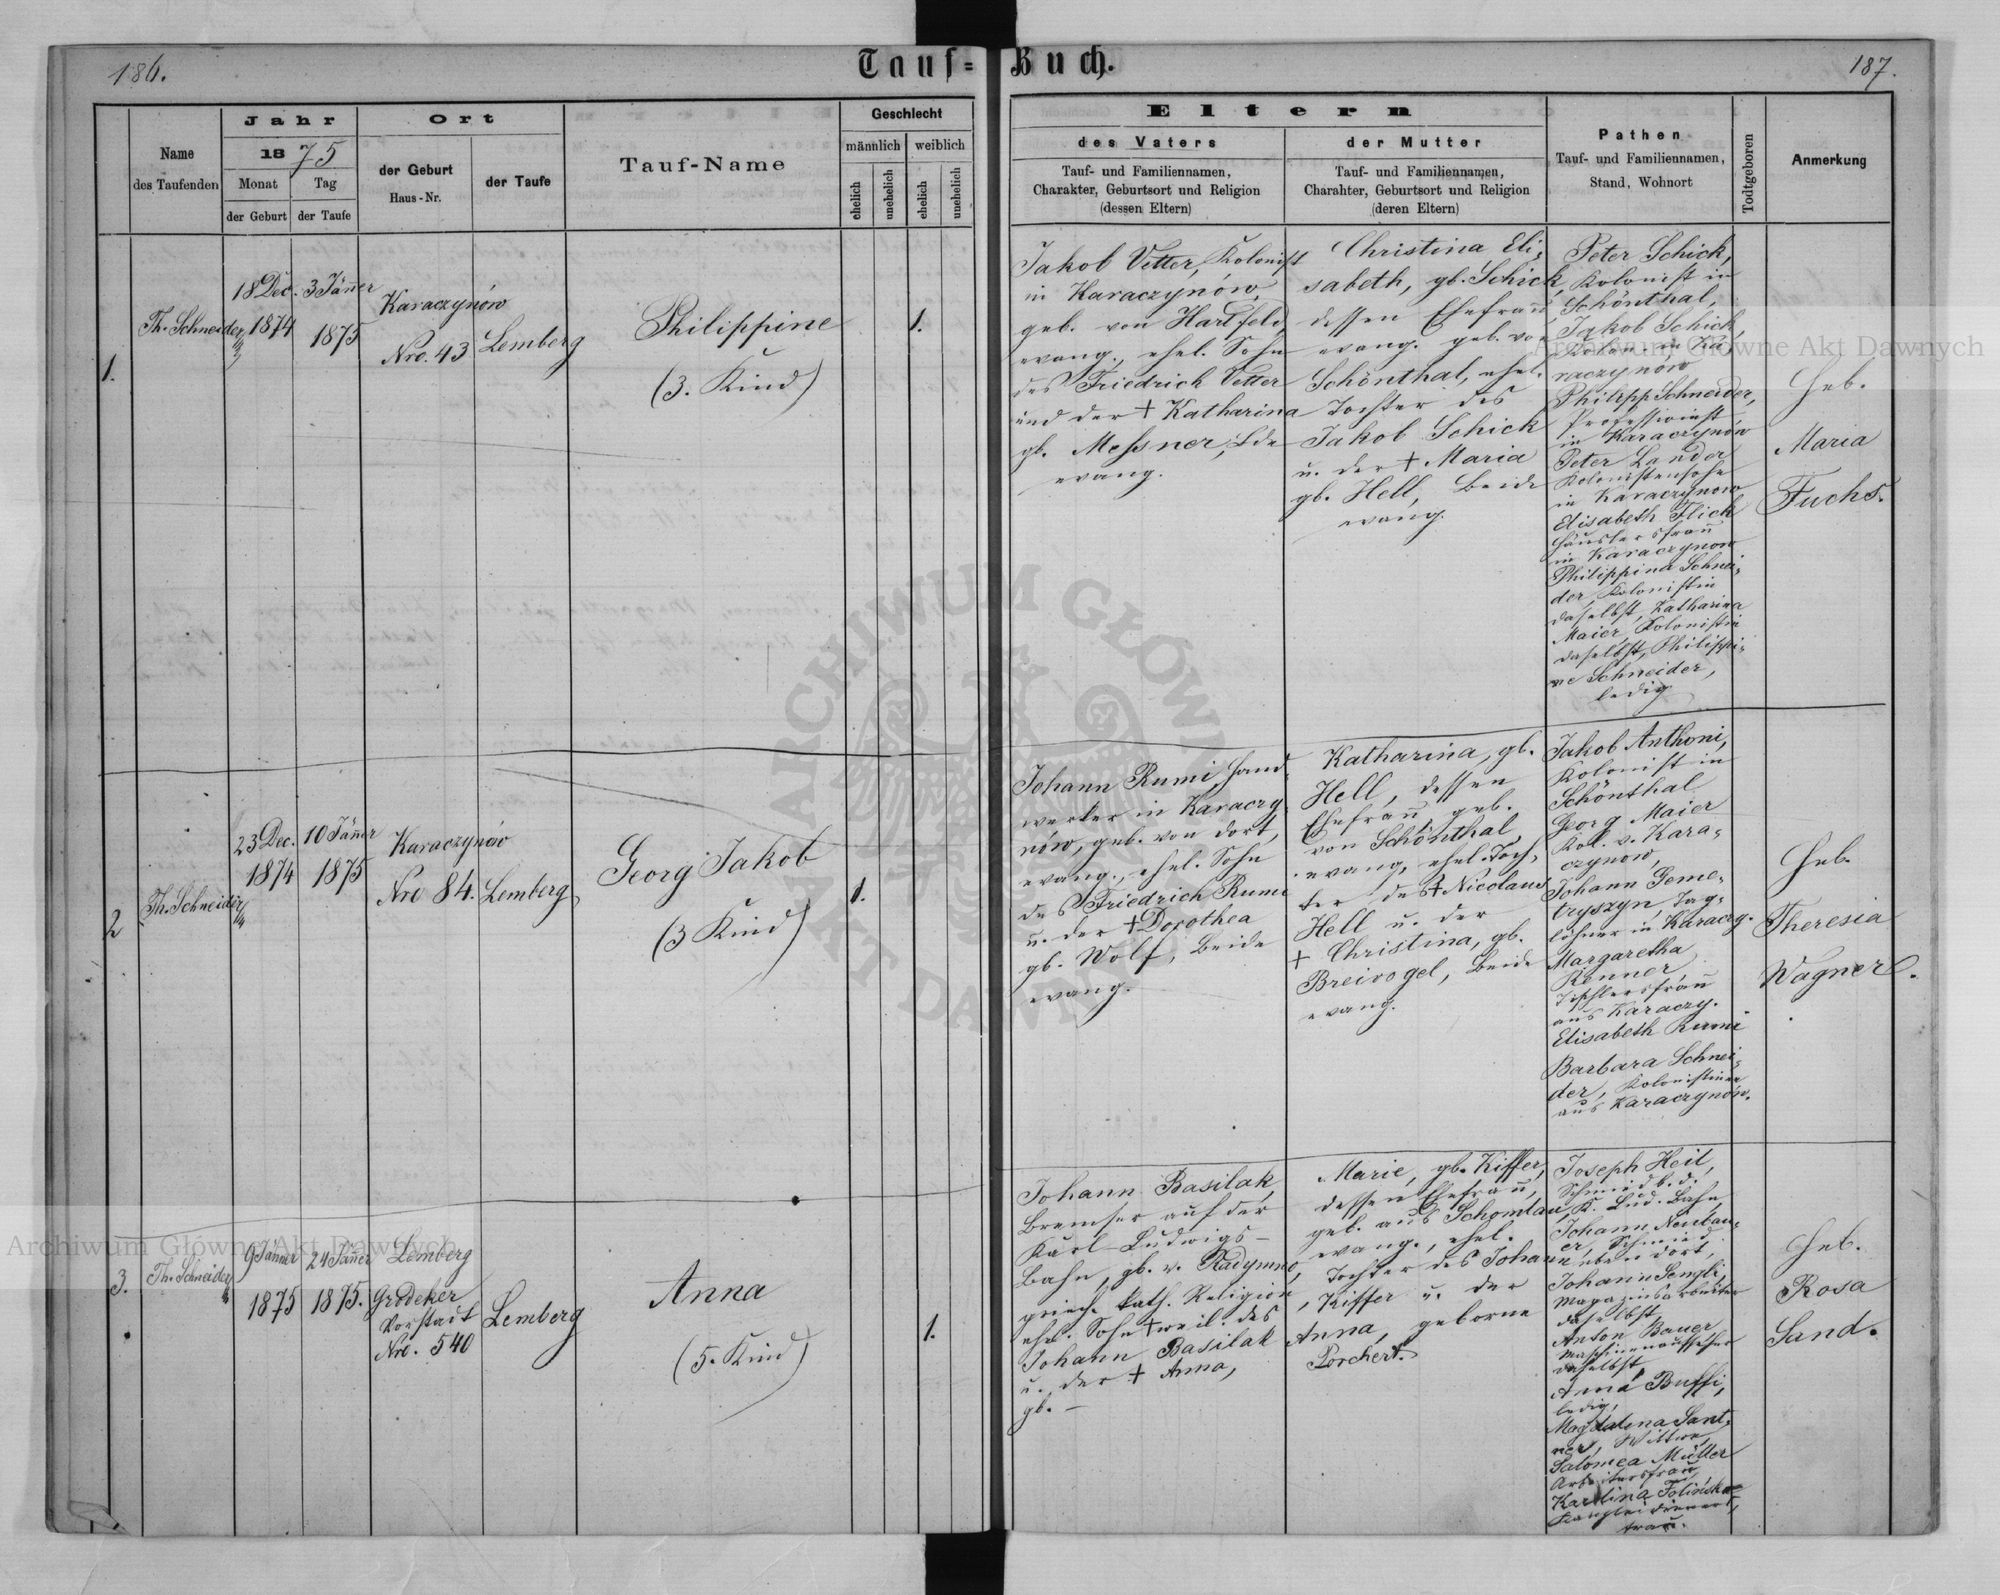 186.
Tauf=Buch.
187.
Name
des Taufenden
Jahr
1875
Monat
Tag
der Geburt
der Taufe
Ort
der Geburt
Haus-Nr.
der Taufe
Tauf-Name
Geschlecht
männlich
weiblich
ehelich
unehelich
ehelich
unehelich
Eltern
des Vaters
Tauf- und Familiennamen,
Charakter, Geburtsort und Religion
(dessen Eltern)
der Mutter
Tauf- und Familiennamen,
Charahter, Geburtsort und Religion
(deren Eltern)
Pathen
Tauf- und Familiennamen,
Stand, Wohnort
Todtgeboren
Anmerkung
1.
Th. Schneider
18 Dec.
1874
3 Jänner
1875
Karaczynów
Nro. 43
Lemberg
Philippine
(3. Kind)
1.
Jakob Vetter, Kolonist
in Karaczynów,
geb. von Hartfeld,
evang., ehel. Sohn
des Friedrich Vetter
und der † Katharina
gb. Messner, bde
evang.
Christina Eli-
sabeth, gb. Schick,
dessen Ehefrau,
evang. geb. von
Schönthal, ehel.
Tochter des
Jakob Schick
u. der † Maria
gb. Hell, beide
evang.
Peter Schick,
Kolonist in
Schönthal,
Jakob Schick,
Kolon. in Ka-
raczynów
Philipp Schneider,
Professionist
in Karaczynów
Peter Lander
Kolonistensohn
in Karaczynow
Elisabeth Flick
Häuslersfrau
in Karaczynow
Philippina Schnei-
der, Kolonistin
daselbst, Katharina
Maier, Kolonistin
daselbst, Philippi-
ne Schneider,
ledig
Heb.
Maria
Fuchs.
2
Th. Schneider
23 Dec.
1874
10 Jänner
1875
Karaczynów
Nro 84.
Lemberg
Georg Jakob
(3 Kind)
1.
Johann Rumi, Hand-
werker in Karaczy
nów, geb. von dort,
evang., ehel. Sohn
des Friedrich Rumi
u. der † Dorothea
gb. Wolf, beide
evang.
Katharina, gb.
Hell, dessen
Ehefrau, geb.
von Schönthal,
evang., ehel. Toch-
ter des † Nicolaus
Hell u. der
† Christina, gb.
Breivogel, beide
evang.
Jakob Anthoni,
Kolonist in
Schönthal
Georg Maier
Kol. v. Kara-
czynow,
Johann Geme-
tryszyn, Tag-
löhner in Karaczy.
Margaretha
Renner,
Tischlersfrau
aus Karaczy.
Elisabeth Rumi
Barbara Schnei-
der, Kolonistinen
aus Karaczynów.
Heb.
Theresia
Wagner.
3.
Th. Schneider
9 Jänner
1875
24 Jänner
1875.
Lemberg
Grodeker
Vorstadt
Nro. 540
Lemberg
Anna
(5. Kind)
1.
Johann Basilak,
Bremser auf der
Karl-Ludwigs-
Bahn, gb. v. Radymno,
griech. kath. Religion,
ehel. Sohn † weil. des
Johann Basilak
u. der † Anna,
gb. –
Marie, gb. Kiffer,
dessen Ehefrau,
geb. aus Schomlau,
evang., ehel.
Tochter des Johann
Kiffer u. der
Anna, geborne
Porchert.
Joseph Heil,
Schmid b. d.
K. Lud. Bahn,
Johann Neubau-
er, Schmied
ebendort,
Johann Sengli,
Magazinsarbeiter
daselbst
Anton Bauer
Maschinenaufseher
daselbst
Anna Buffi,
ledig,
Magdalena Sant-
ner, Wittwe,
Salomea Müller
Arbeitersfrau,
Karolina Folińska
Kanzleidieners-
frau.
Heb.
Rosa
Sand.
Archiwum Główne Akt Dawnych
Archiwum Główne Akt Dawnych
ARCHIWUM GŁÓWNE
AKT DAWNYCH